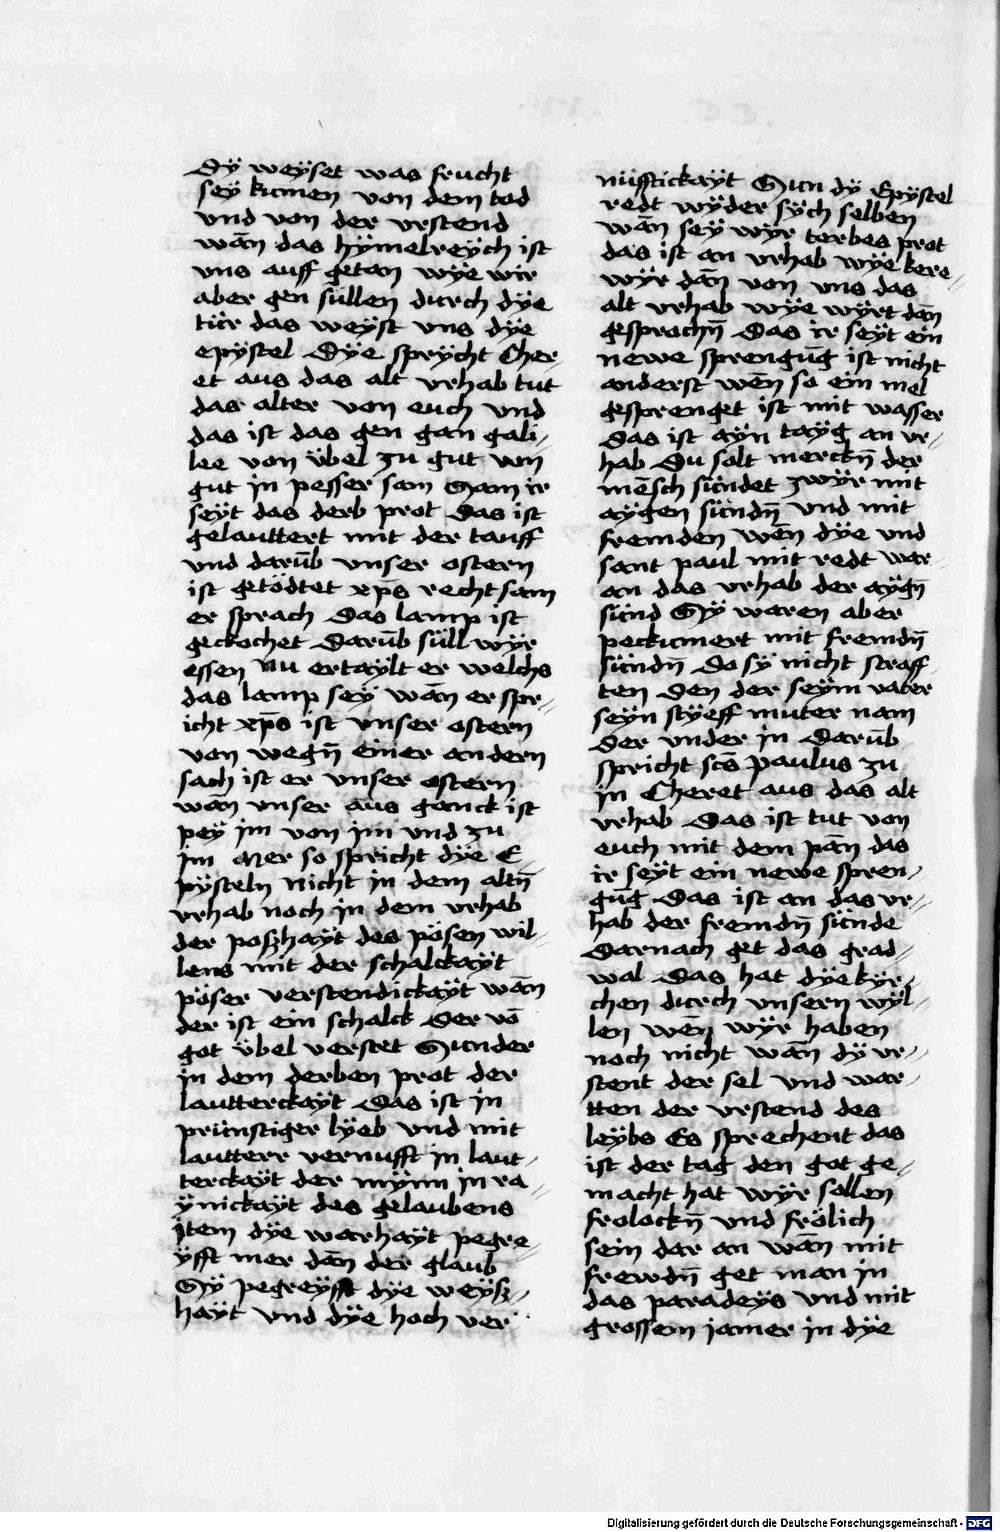 Dÿ weÿset was frucht
seÿ kumen von dem tod
vnd von der vrstend
wan̄ das hÿmelreÿch ist
vns auff getan wÿe wir
aber gen süllen durch dÿe
tür das weÿst vns dÿe
epÿstel Dÿe sprÿcht Cher-
et aus das alt vrhab tut
das alter von euch vnd
das ist das gen gan gali-
lee von übel zu gut von
gut in pesser sam Sam ir
seÿt das derb prot Das ist
gelauttert mit der tauff
vnd darūb vnser ostern
ist getödtet xp̄s recht sam
er sprach Das lamp ist
gekochet Darūb süll wÿr
essen Nu ertaÿlt er welchs
das lamp seÿ wan̄ er spr-
icht xp̄s ist vnser ostern
von wegn̄ einer andern
sach ist er vnser ostern
wan vnser aus ganck ist
peÿ im von im vnd zu
im Mer so spricht dÿe E-
pÿsteln nicht in dem altn̄
vrhab noch in dem vrhab
der poszhaÿt des pösen wil-
lens mit der schalckaÿt
pöser verstendickaÿt wan̄
der ist ein schalck Der vō
got übel verstet Sunder
in dem derben prot der
lautterckaÿt Das ist in
prünstiger lÿeb vnd mit
lautterr vernufft in laut-
terckaÿt der mÿnn in ra-
ÿnickaÿt des gelaubens
Item dÿe warhaÿt pegre-
ÿfft mer dan̄ der glaub
Sÿ pegreÿfft dÿe weÿsz-
haÿt vnd dÿe hoch ver
nüfftickaÿt Sun dÿ Epÿstel
redt wÿder sÿch selben
wan̄ seÿ wÿr terbes prot
das ist an vrhab wÿe kere-
wÿr dan̄ von vns das
alt vrhab wÿe wÿrt dan̄
gesprochn̄ Das ir seÿt ein
newe sprengūg ist nicht
anderst wen̄ so ein mel
gesprenget ist mit wasser
Das ist aÿn taÿg an vr-
hab Du solt merckn̄ der
mēsch sündet zwÿr mit
aÿgen sündn̄ vnd mit
fremden wen̄ dÿe vnd
sant paul mit redt war-
an das vrhab der aÿgn̄
sünd Sÿ waren aber
peckumert mit fremdn̄
sündn̄ Do sÿ nicht straff-
ten Den der seÿm vater
seÿn stÿeff muter nam
Der vnder in Darūb
spricht scs̄ paulus zu
in Cheret aus das alt
vrhab Das ist tut von
euch mit dem pan̄ das
ir seÿt ein newe spren-
gūg Das ist an das vr-
hab der fremdn̄ sünde
Darnach get das grad-
wal Das hat dÿe kÿr-
chen durch vnsern wÿl-
len wen̄ wÿr haben
noch nicht wan̄ dÿ vr-
stent der sel vnd war-
tten der vrstend des
leÿbs Es sprechent das
ist der tag den got ge-
macht hat wÿr sollen
frolockn̄ vnd frölich
sein dar an wan̄ mit
frewdn̄ get man in
das paradeÿs vnd mit
grossem jamer in dÿe
Digitalisierung gefördert durch die Deutsche Forschungsgemeinschaft - DFG